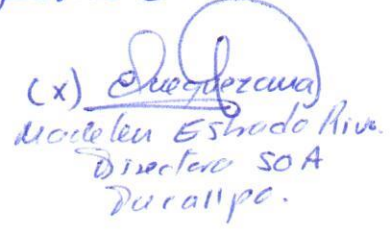 (x)
Madelen Estrada Riva.
Directora SOA
Pucallpa.